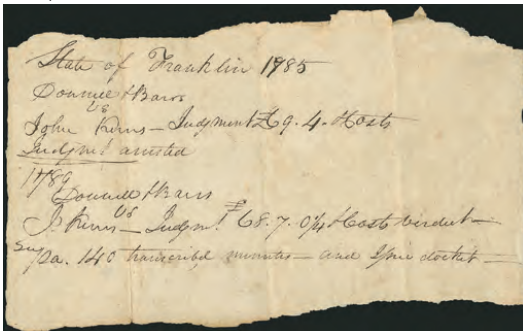 State of Franklin 1785
Donnell & Bans
vs
John Kerns – Judgment £9.4. & Costs
Judgmt arrested
1789
Donnell & Bans
vs
J. Kerns – Judgmt. £68.7.0 & Costs verdict –
pa. 140 transcribed minutes – and docket –